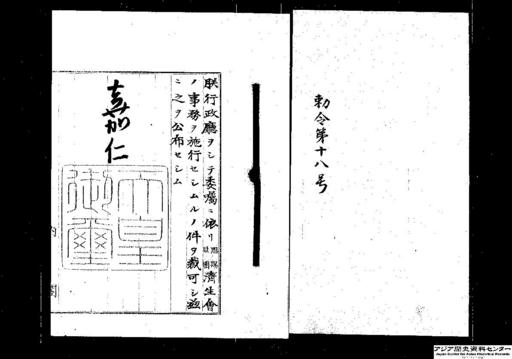 勅令第十八号
朕行政廳ヲシテ委囑ニ依リ恩賜財團濟生會
ノ事務ヲ施行セシムルノ件ヲ裁可シ茲
ニ之ヲ公布セシム
嘉仁
天皇
御璽
内閣
アジア歴史資料センター
Japan Center for Asian Historical Records